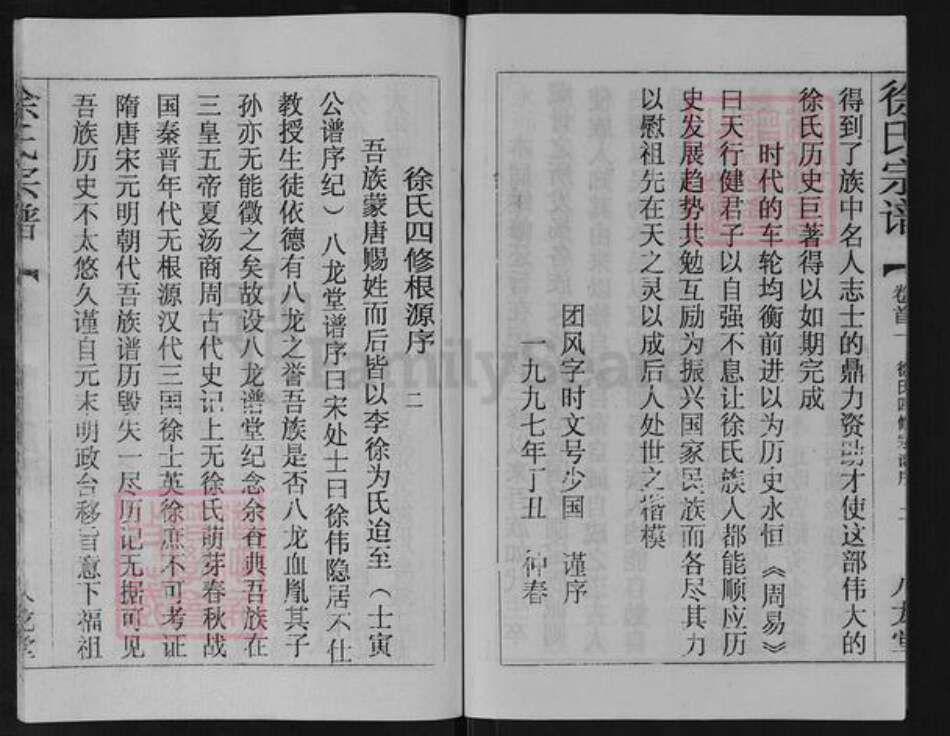 徐氏宗谱
【卷首一
八龙堂
得到了族中名人志士的鼎力资助才使这部伟大的
徐氏历史巨著得以如期完成
时代的车轮均衡前进以为历史永恒《周易》
曰天行健君子以自强不息让徐氏族人都能顺应历
史发展趋势共勉互励为振兴国家民族而各尽其力
以慰祖先在天之灵以成后人处世之楷模
团风字时文号少国 谨序
一九九七年丁丑 仲春
徐氏四修根源序 二
吾族蒙唐赐姓而后皆以李徐为氏迨至（士寅
公谱序纪）八龙堂谱序曰宋处士曰徐伟隐居不仕
教授生徒依德有八龙之誉吾族是否八龙血胤其子
孙亦无能徵之矣故设八龙谱堂纪念余查典吾族在
三皇五帝夏汤商周古代史记上无徐氏萌芽春秋战
国秦晋年代无根源汉代三国徐士英徐庶不可考证
隋唐宋元明朝代吾族谱历毁失一尽历记无据可见
吾族历史不太悠久谨自元末明政台移言意下福祖
徐氏宗谱
【
八龙堂
FamilySearch